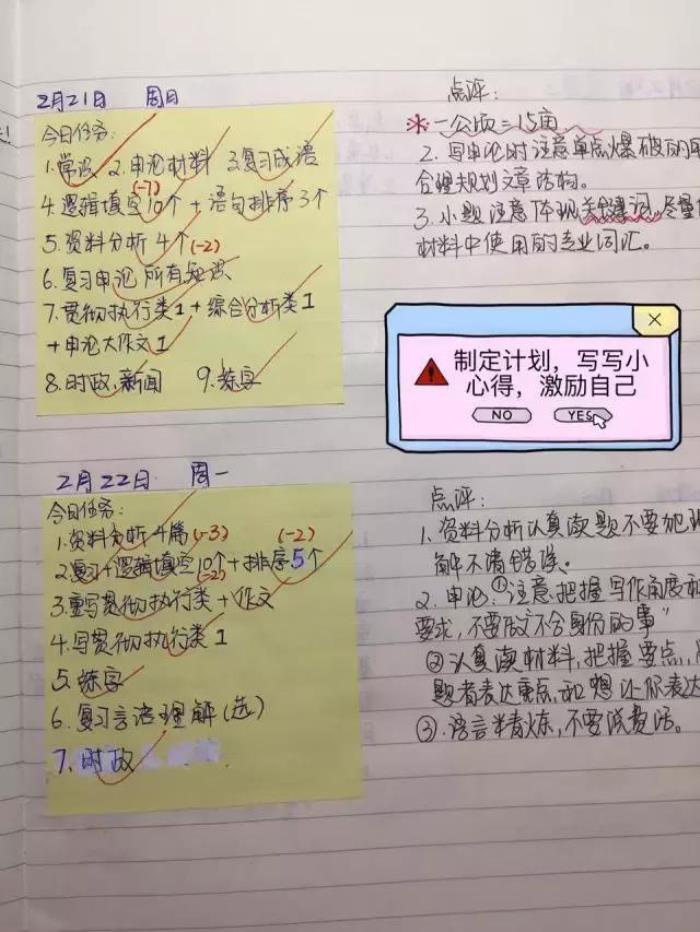 2月21日 周日
今日任务:
1.常识 2.申论材料 3.复习成语
(-7)
4.逻辑填空10个+语句排序3个
5.资料分析4个(-2)
6.复习申论所有知识
7.贯彻执行类1+综合分析类1
+申论大作文1
8.时政,新闻 9.练字
点评:
※一公顷=15亩
2.写申论时注意单点爆破的
合理规划文章结构。
3.小题注意体现关键词,尽量
材料中使用的专业词汇。
制定计划,写写小
心得,激励自己
NO YES
2月22日 周一
今日任务:
1.资料分析4篇(-3) (-2)
2.复习+逻辑填空10个+排序5个
(-2)
3.重写贯彻执行类+作文
4.写贯彻执行类1
5.练字
6.复习言语理解(选)
7.时政
点评:
1.资料分析认真读题不要犯
解不清错误。
2.申论:①注意把握写作角度和
要求,不要做"不合身份的事"
②认真读材料,把握要点,
题者表达重点,和想让你表达
③.语言精炼,不要说废话。